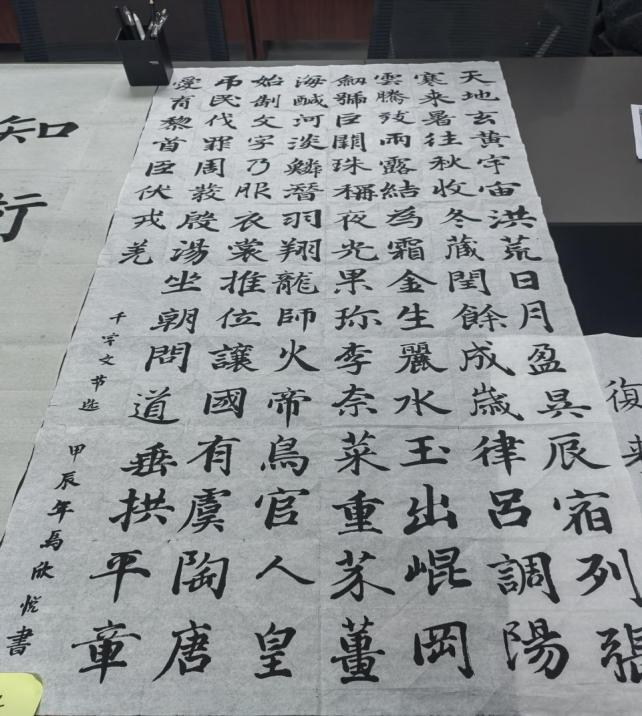 天地玄黄宇宙洪荒日月盈昃辰宿列張
寒来暑往秋收冬藏閏餘成歲律呂調陽
雲騰致雨露結為霜金生麗水玉出崐岡
劔號巨闕珠稱夜光果珎李奈菜重芥薑
海鹹河淡鱗潛羽翔龍師火帝鳥官人皇
始制文字乃服衣裳推位讓國有虞陶唐
弔民伐罪周發殷湯坐朝問道垂拱平章
愛育黎首臣伏戎羌
千字文节选
甲辰年馬欣悦書
知行
復